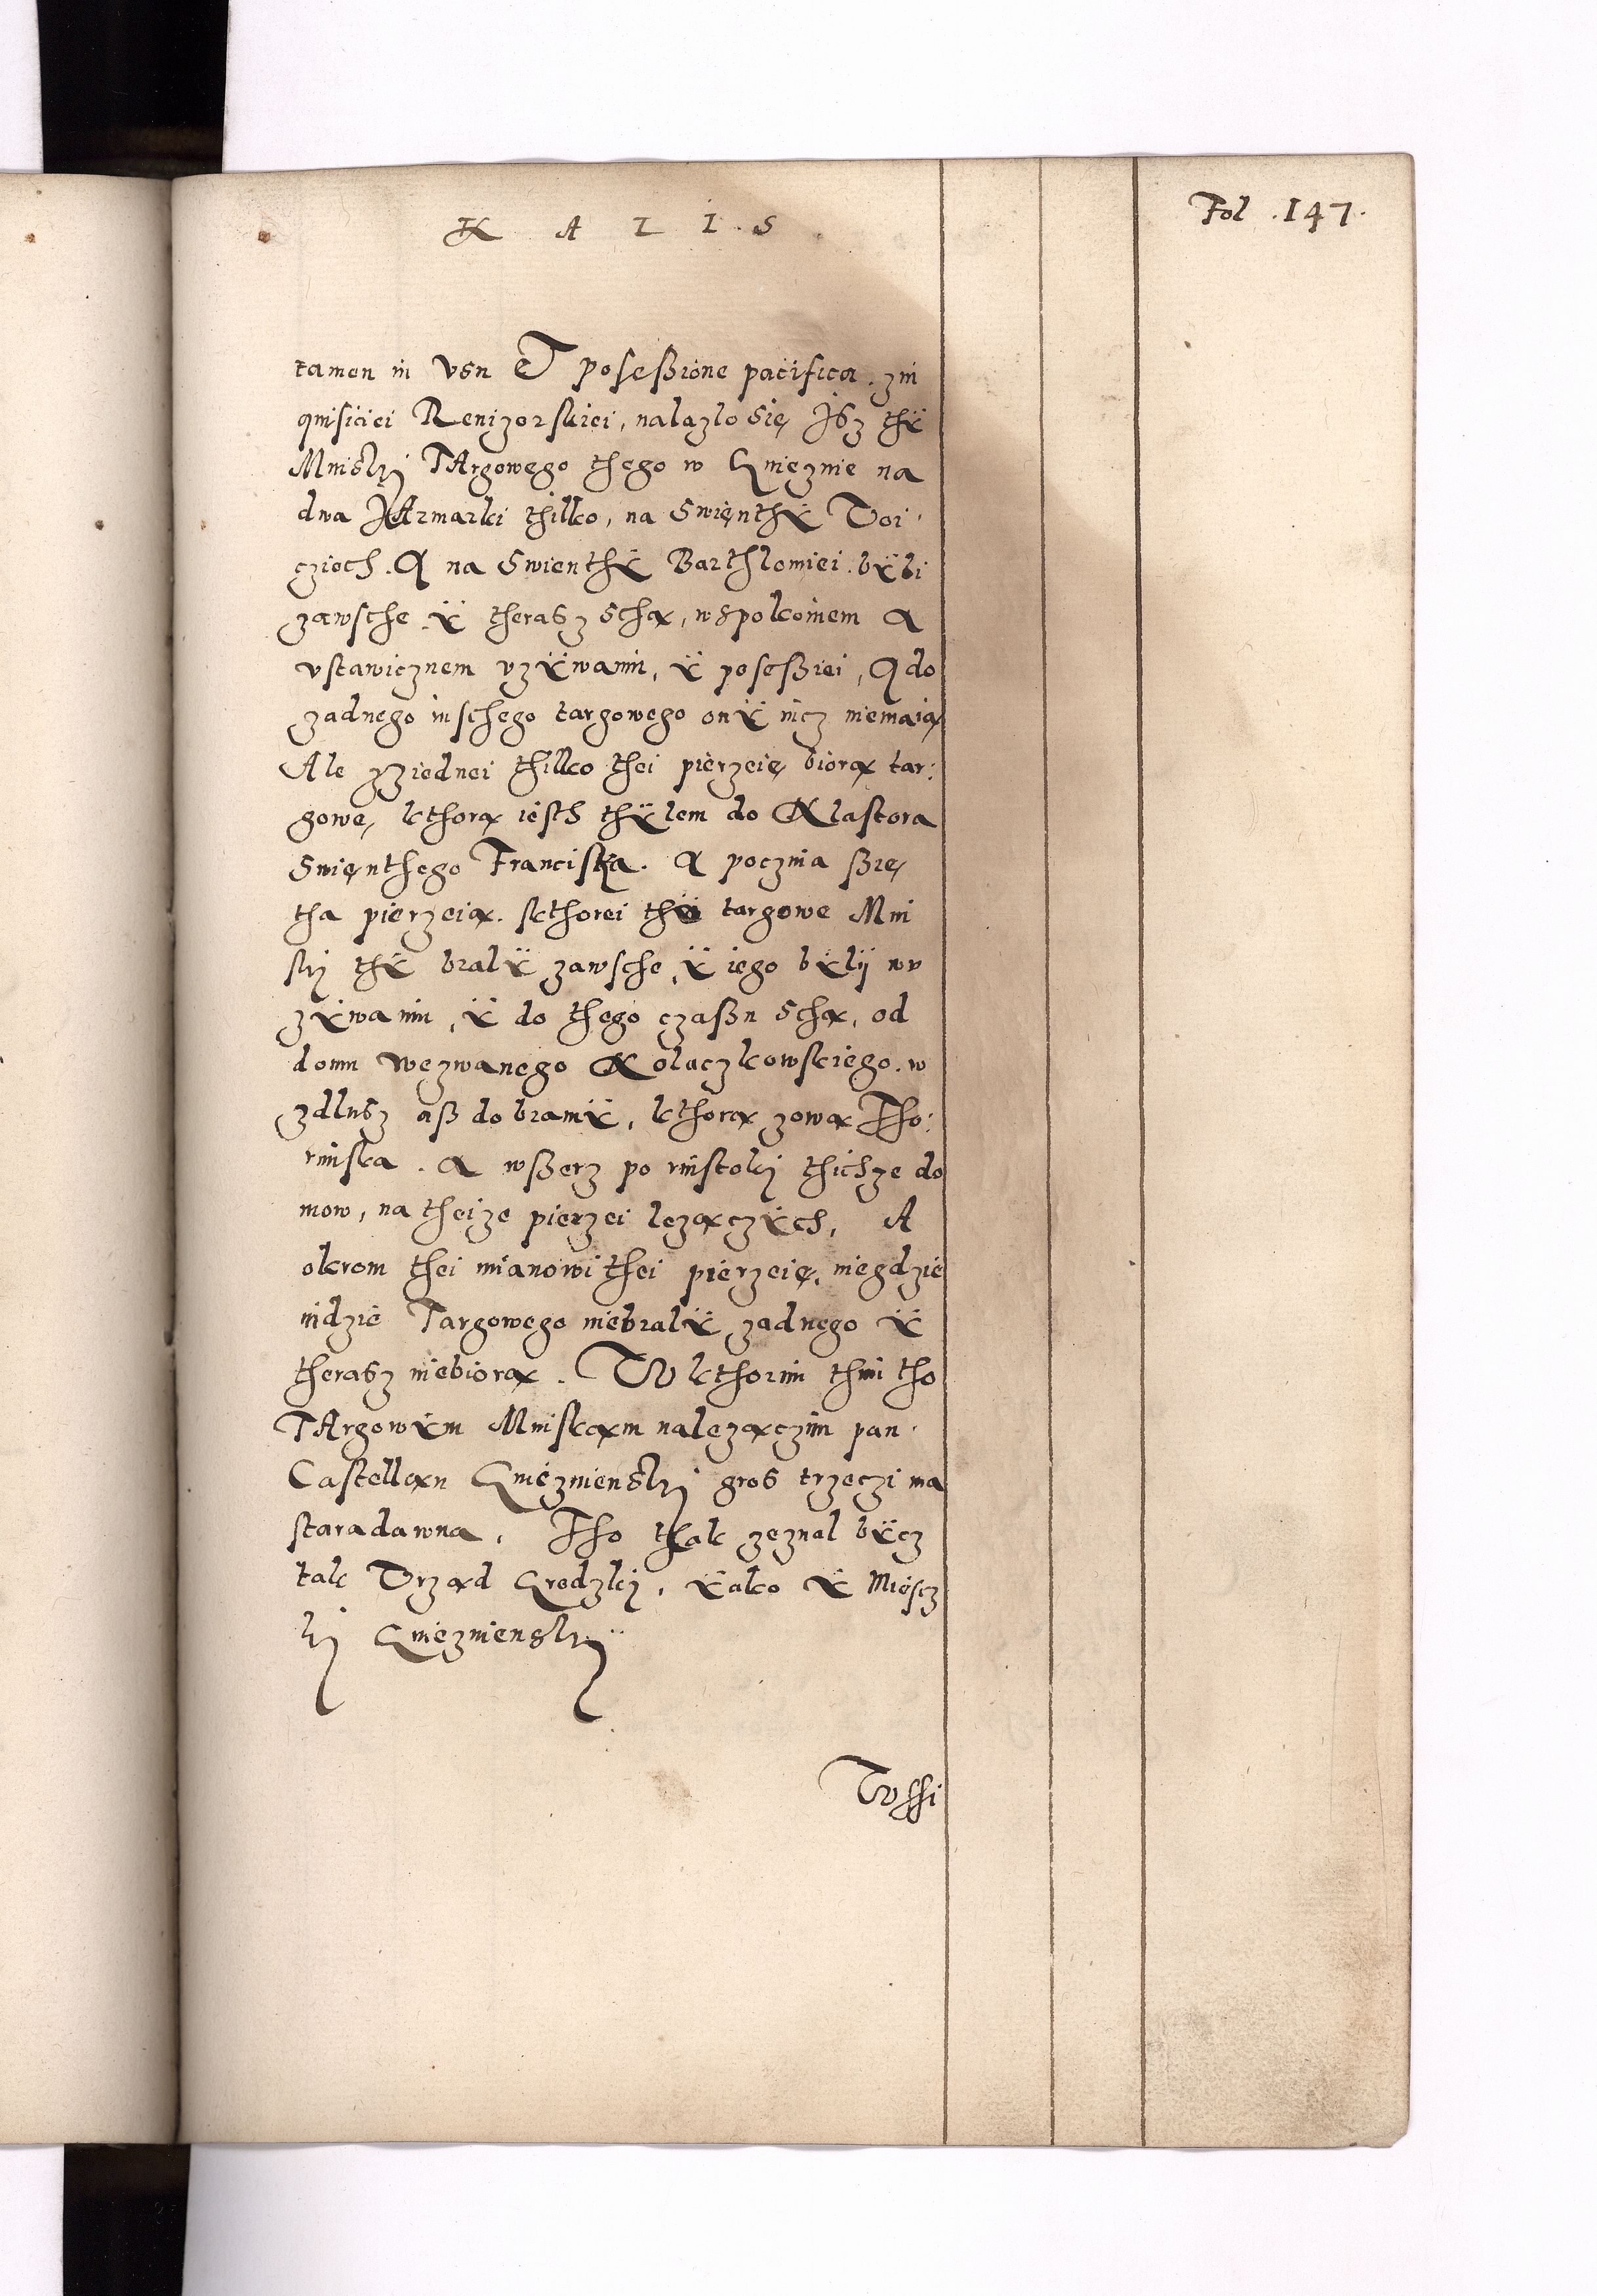 K A L I S
Fol. 147.
tamen in vsu Et poseßione pacifica. zin
quisiciei Renizorskiei, nalazlo się Isz thÿ
Mniskj TArgowego thego w Gnieznie na
dwa JArmarki thilko, na Swięnthÿ Voi
cziech. A na Swienthÿ Barthlomiei. bÿli
zawsche ÿ therasz schą, wspokoinem A
vstawicznem vzÿwaniu, ÿ poseßiei, A do
zadnego inschego targowego onÿ nicz niemaią
Ale zziednei thilko thei pierzeię biorą tar:
gowe, kthorą iesth thÿlem do Klastora
Swięnthego Franciska. A poczina ßię
tha pierzeią. kthorei thei targowe Mni
skj thÿ bralÿ zawsche, ÿ iego bÿlÿ wv
zÿwaniu, ÿ do thego czaßu schą, od
domu wezwanego Kolaczkowskiego. w
zdlusz aß do bramÿ, kthorą zową Tho:
runska. A wßerz po rinstokj thichze do
mow, na theize pierzei lezączÿch, A
okrom thei mianowithei pierzeię, niegdzie
indzie Targowego niebralÿ zadnego ÿ
therasz niebiorą. W kthorim thim tho
TArgowÿm Mniskąm nalezączim pan
Castellan Gnieznienskj gros trzeczi ma
staradawna. Tho thak zeznal bÿcz
tak Vrząd Grodzkj, ÿako ÿ Miejscz
kj Gnieznienskj
Wssi